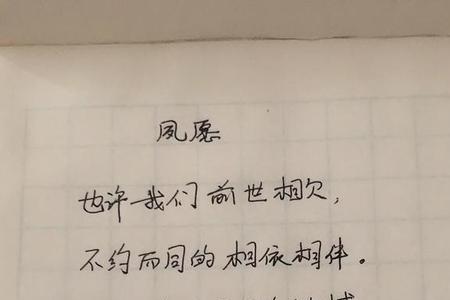 夙愿
也许我们前世相欠，
不约而同的相依相伴。